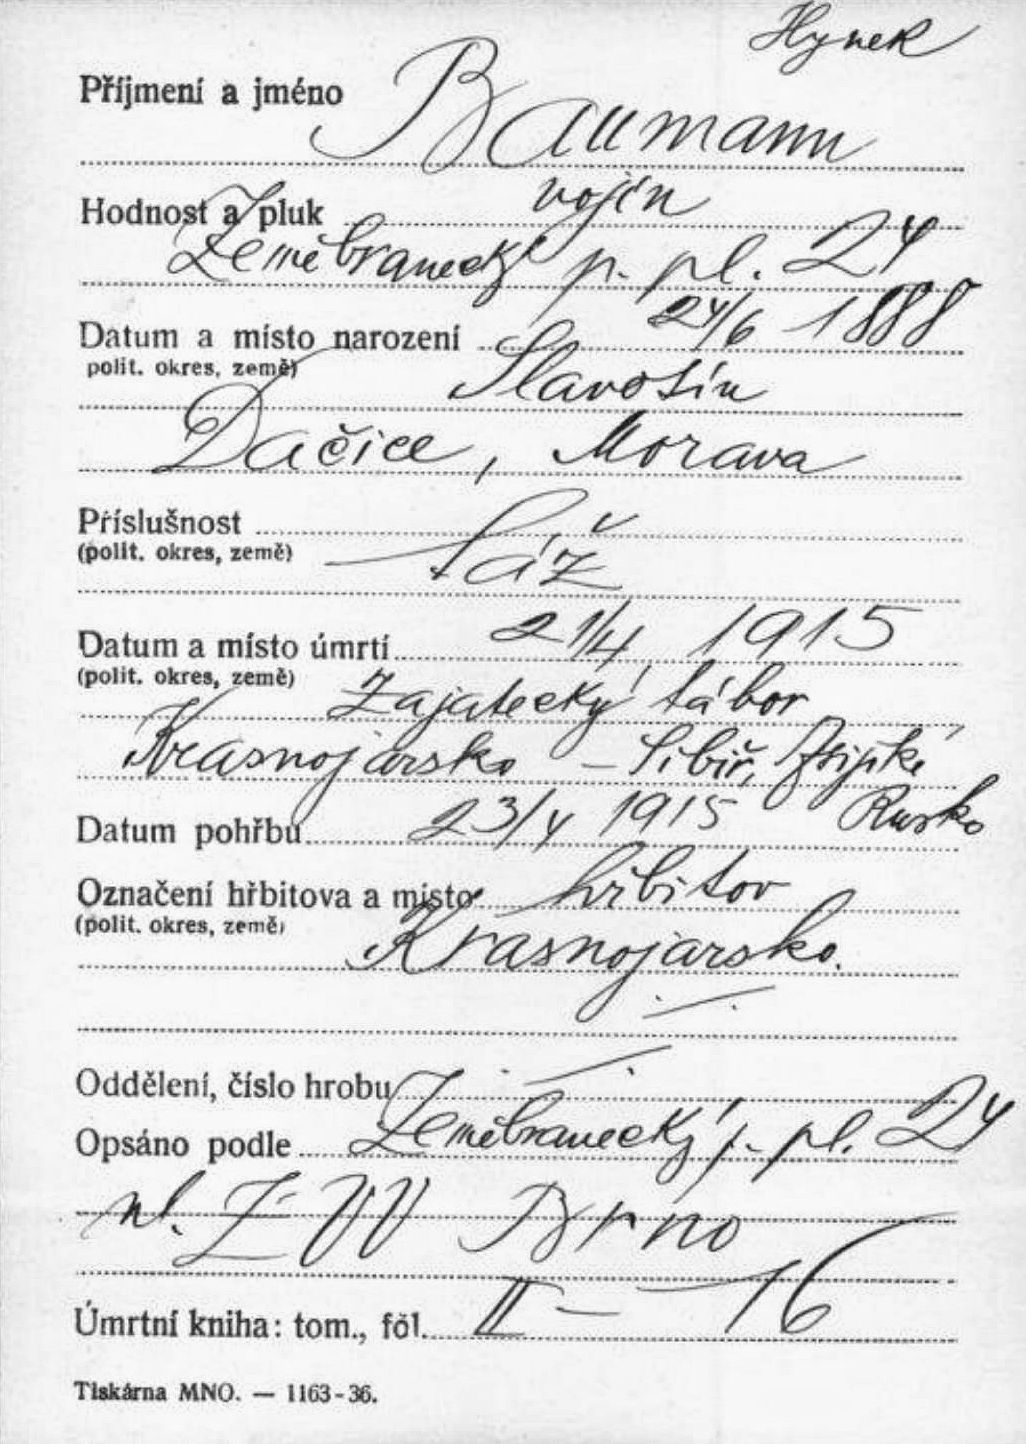 Hynek
Příjmení a jméno Baumann
Hodnost a pluk vojín
Zeměbranecký p. pl. 24
Datum a místo narození 24/6 1888
polit. okres, země) Slavosín
Dačice, Morava
Příslušnost
(polit. okres, země) táž
Datum a místo úmrtí 21/4 1915
(polit. okres, země) Zajatecký tábor
Krasnojarsko – Sibiř, Asijské
Rusko
Datum pohřbu 23/4 1915
Označení hřbitova a místo hřbitov
(polit. okres, země) Krasnojarsko.
Oddělení, číslo hrobu
Opsáno podle Zeměbranecký p. pl. 24
ZVV Brno
Úmrtní kniha: tom., fól. II – 16
Tiskárna MNO. — 1163-36.